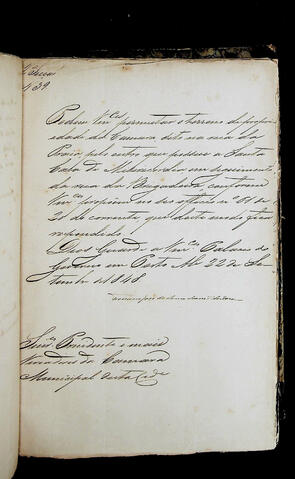 2ª Secção
N 39
Podem Vm.ces permutar o terreno de propri
edade da Camara sito na rua da
Praia, pelo outro que possue a Santa
Casa de Misericordia em seguimento
da rua do Bragança, conforme
Vm.ces propõem no seo officio nº 61 de
20 do corrente que deste modo fica
respondido.
Deos Guarde a Vm.ces Palacio do
Governo em Porto Al. 22 de Se
tembro de 1848
Senr.es Presidente e mais
Vereadores da Camara
Municipal desta Cid.e